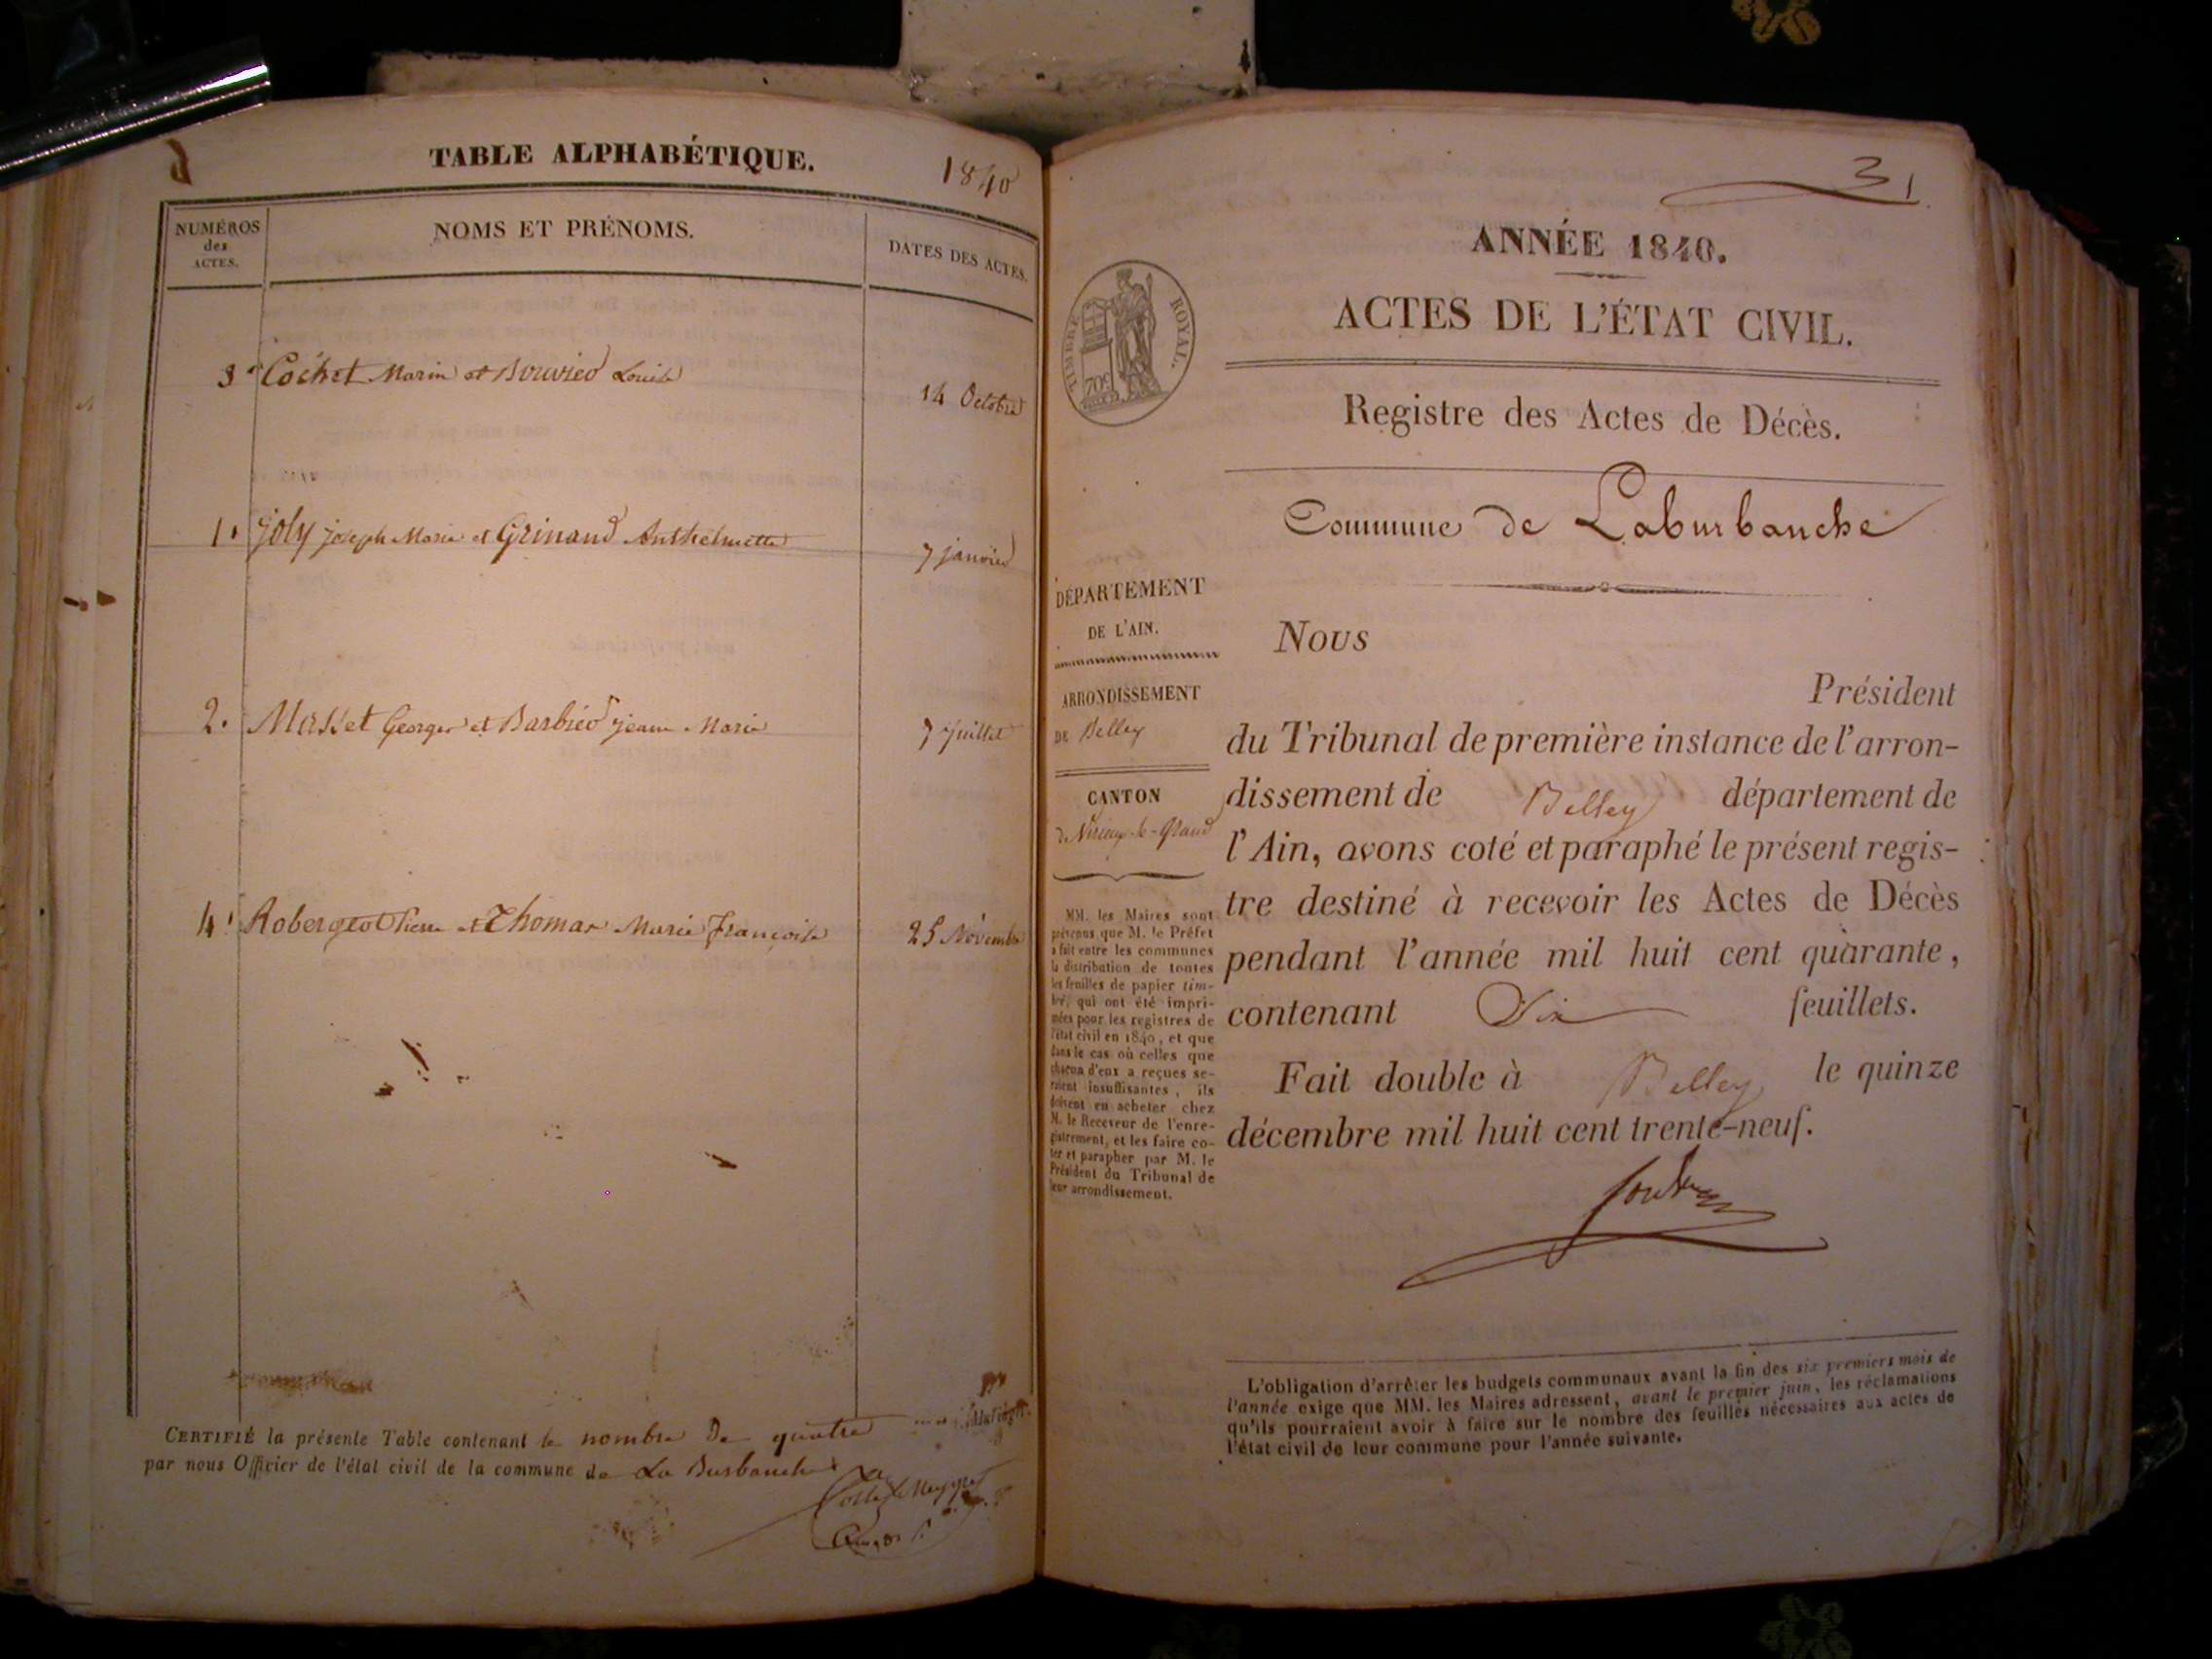 TABLE ALPHABÉTIQUE.
1840
NUMÉROS
des
ACTES.
NOMS ET PRÉNOMS.
DATES DES ACTES.
3 Cochet Marin et Bouvier Louise
14 Octobre
1. Joly Joseph Marie et Grinand Anthelmette
7 janvier
2. Masset Georges et Barbier jeanne Marie
7 juillet
4. Robergeot Pierre et Thomas Marie Françoise
25 Novembre
CERTIFIÉ la présente Table contenant le nombre De quatre
par nous Officier de l'état civil de la commune de La Burbanche
31
ANNÉE 1840.
ACTES DE L'ÉTAT CIVIL.
TIMBRE ROYAL.
70c
Registre des Actes de Décès.
Commune de Laburbanche
DÉPARTEMENT
DE L'AIN.
ARRONDISSEMENT
DE Belley
CANTON
de Virieux-le-Grand
MM. les Maires sont
prévenus que M. le Préfet
a fait entre les communes
la distribution de toutes
les feuilles de papier tim-
bré, qui ont été impri-
mées pour les registres de
l'état civil en 1840, et que
dans le cas où celles que
chacun d'eux a reçues se-
raient insuffisantes, ils
doivent en acheter chez
M. le Receveur de l'enre-
gistrement, et les faire co-
ter et parapher par M. le
Président du Tribunal de
leur arrondissement.
Nous
Président
du Tribunal de première instance de l'arron-
dissement de Belley département de
l'Ain, avons coté et paraphé le présent regis-
tre destiné à recevoir les Actes de Décès
pendant l'année mil huit cent quarante,
contenant Six feuillets.
Fait double à Belley le quinze
décembre mil huit cent trente-neuf.
L'obligation d'arrêter les budgets communaux avant la fin des six premiers mois de
l'année exige que MM. les Maires adressent, avant le premier juin, les réclamations
qu'ils pourraient avoir à faire sur le nombre des feuilles nécessaires aux actes de
l'état civil de leur commune pour l'année suivante.